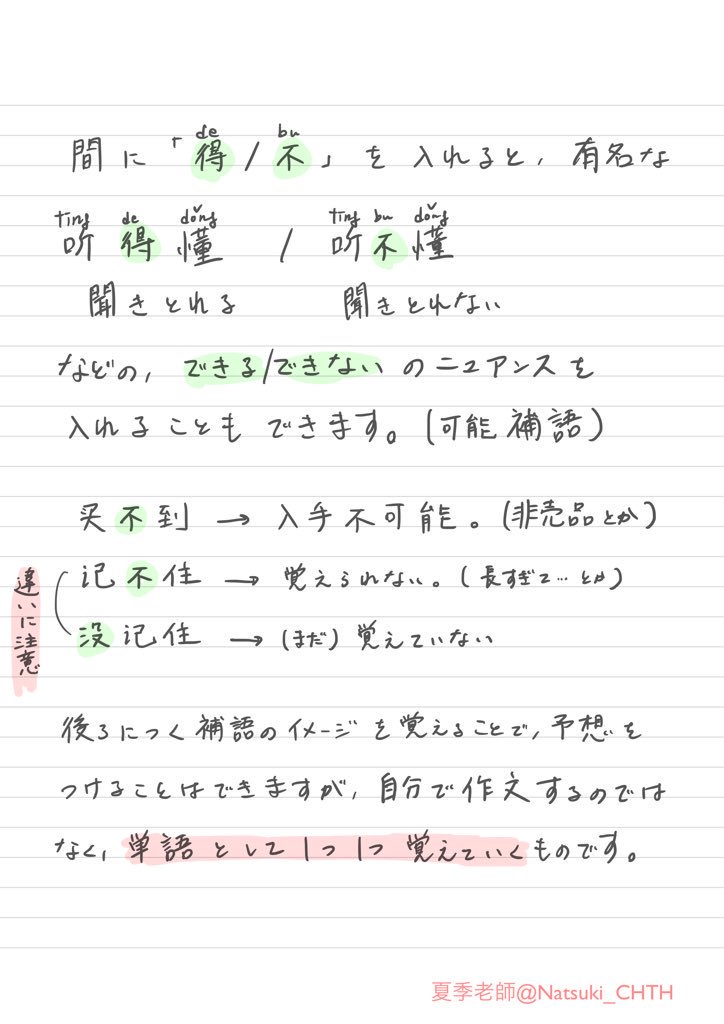 de bu
間に「得/不」を入れると、有名な
tīng de dǒng tīng bu dǒng
听得懂 / 听不懂
聞きとれる 聞きとれない
などの、できる/できないのニュアンスを
入れることもできます。(可能補語)
买不到 → 入手不可能。(非売品とか)
记不住 → 覚えられない。(長すぎて…とか)
没记住 → (まだ)覚えていない
違いに注意
後ろにつく補語のイメージを覚えることで、予想を
つけることはできますが、自分で作文するのでは
なく、単語として1つ1つ覚えていくものです。
夏季老師@Natsuki_CHTH